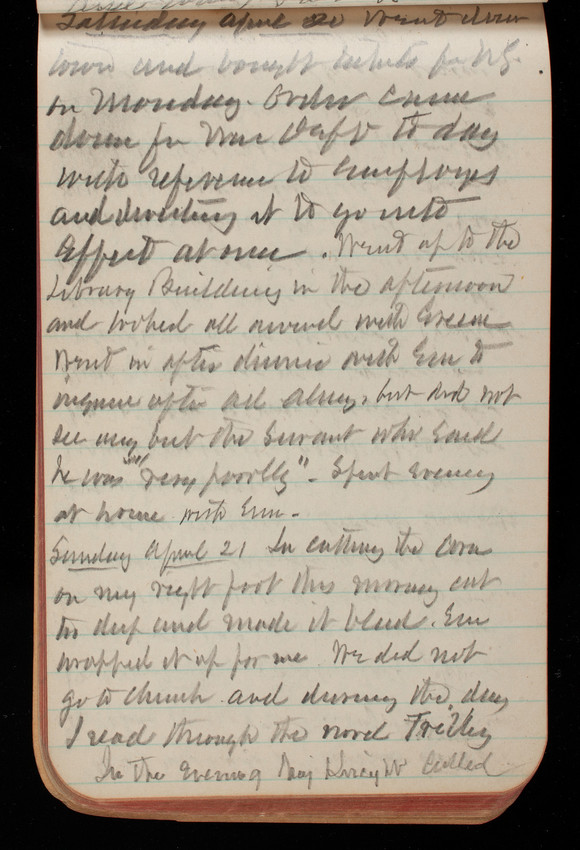 Saturday April 20 Went down
town and bought tickets for N.Y.
on Monday. Order came
down fr War Dept to day
with reference to Employes
and directing it to go into
Effect at once. Went up to the
Library Building in the afternoon
and looked all around with Green
Went in after dinner with Em to
inquire after, but did not
see any but the Servant who said
he was "very poorly". Spent Evening
at home with Em.
Sunday April 21 In cutting the corn
on my right foot this morning cut
too deep and made it bleed. Em
wrapped it up for me We did not
go to church and during the day
I read through the novel Trilby
In the Evening Maj Knight Called